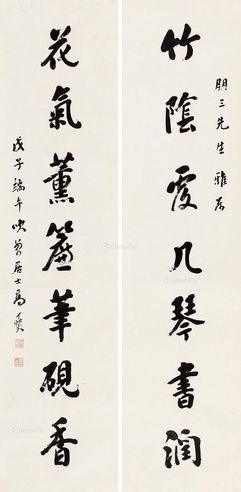 朋三先生雅屬
竹陰覆几琴書潤
花氣薰簾筆硯香
戊子端午吹萬居士高燮